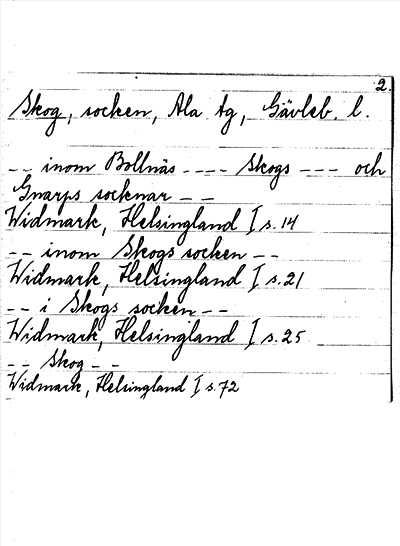 2.
Skog, socken, Ala tg, Gävleb. l.
-- inom Bollnäs ---- Skogs --- och
Gnarps socknar --
Widmark, Helsingland I s. 14
-- inom Skogs socken --
Widmark, Helsingland I s. 21
-- i Skogs socken --
Widmark, Helsingland I s. 25
-- Skog --
Widmark, Helsingland I s. 72